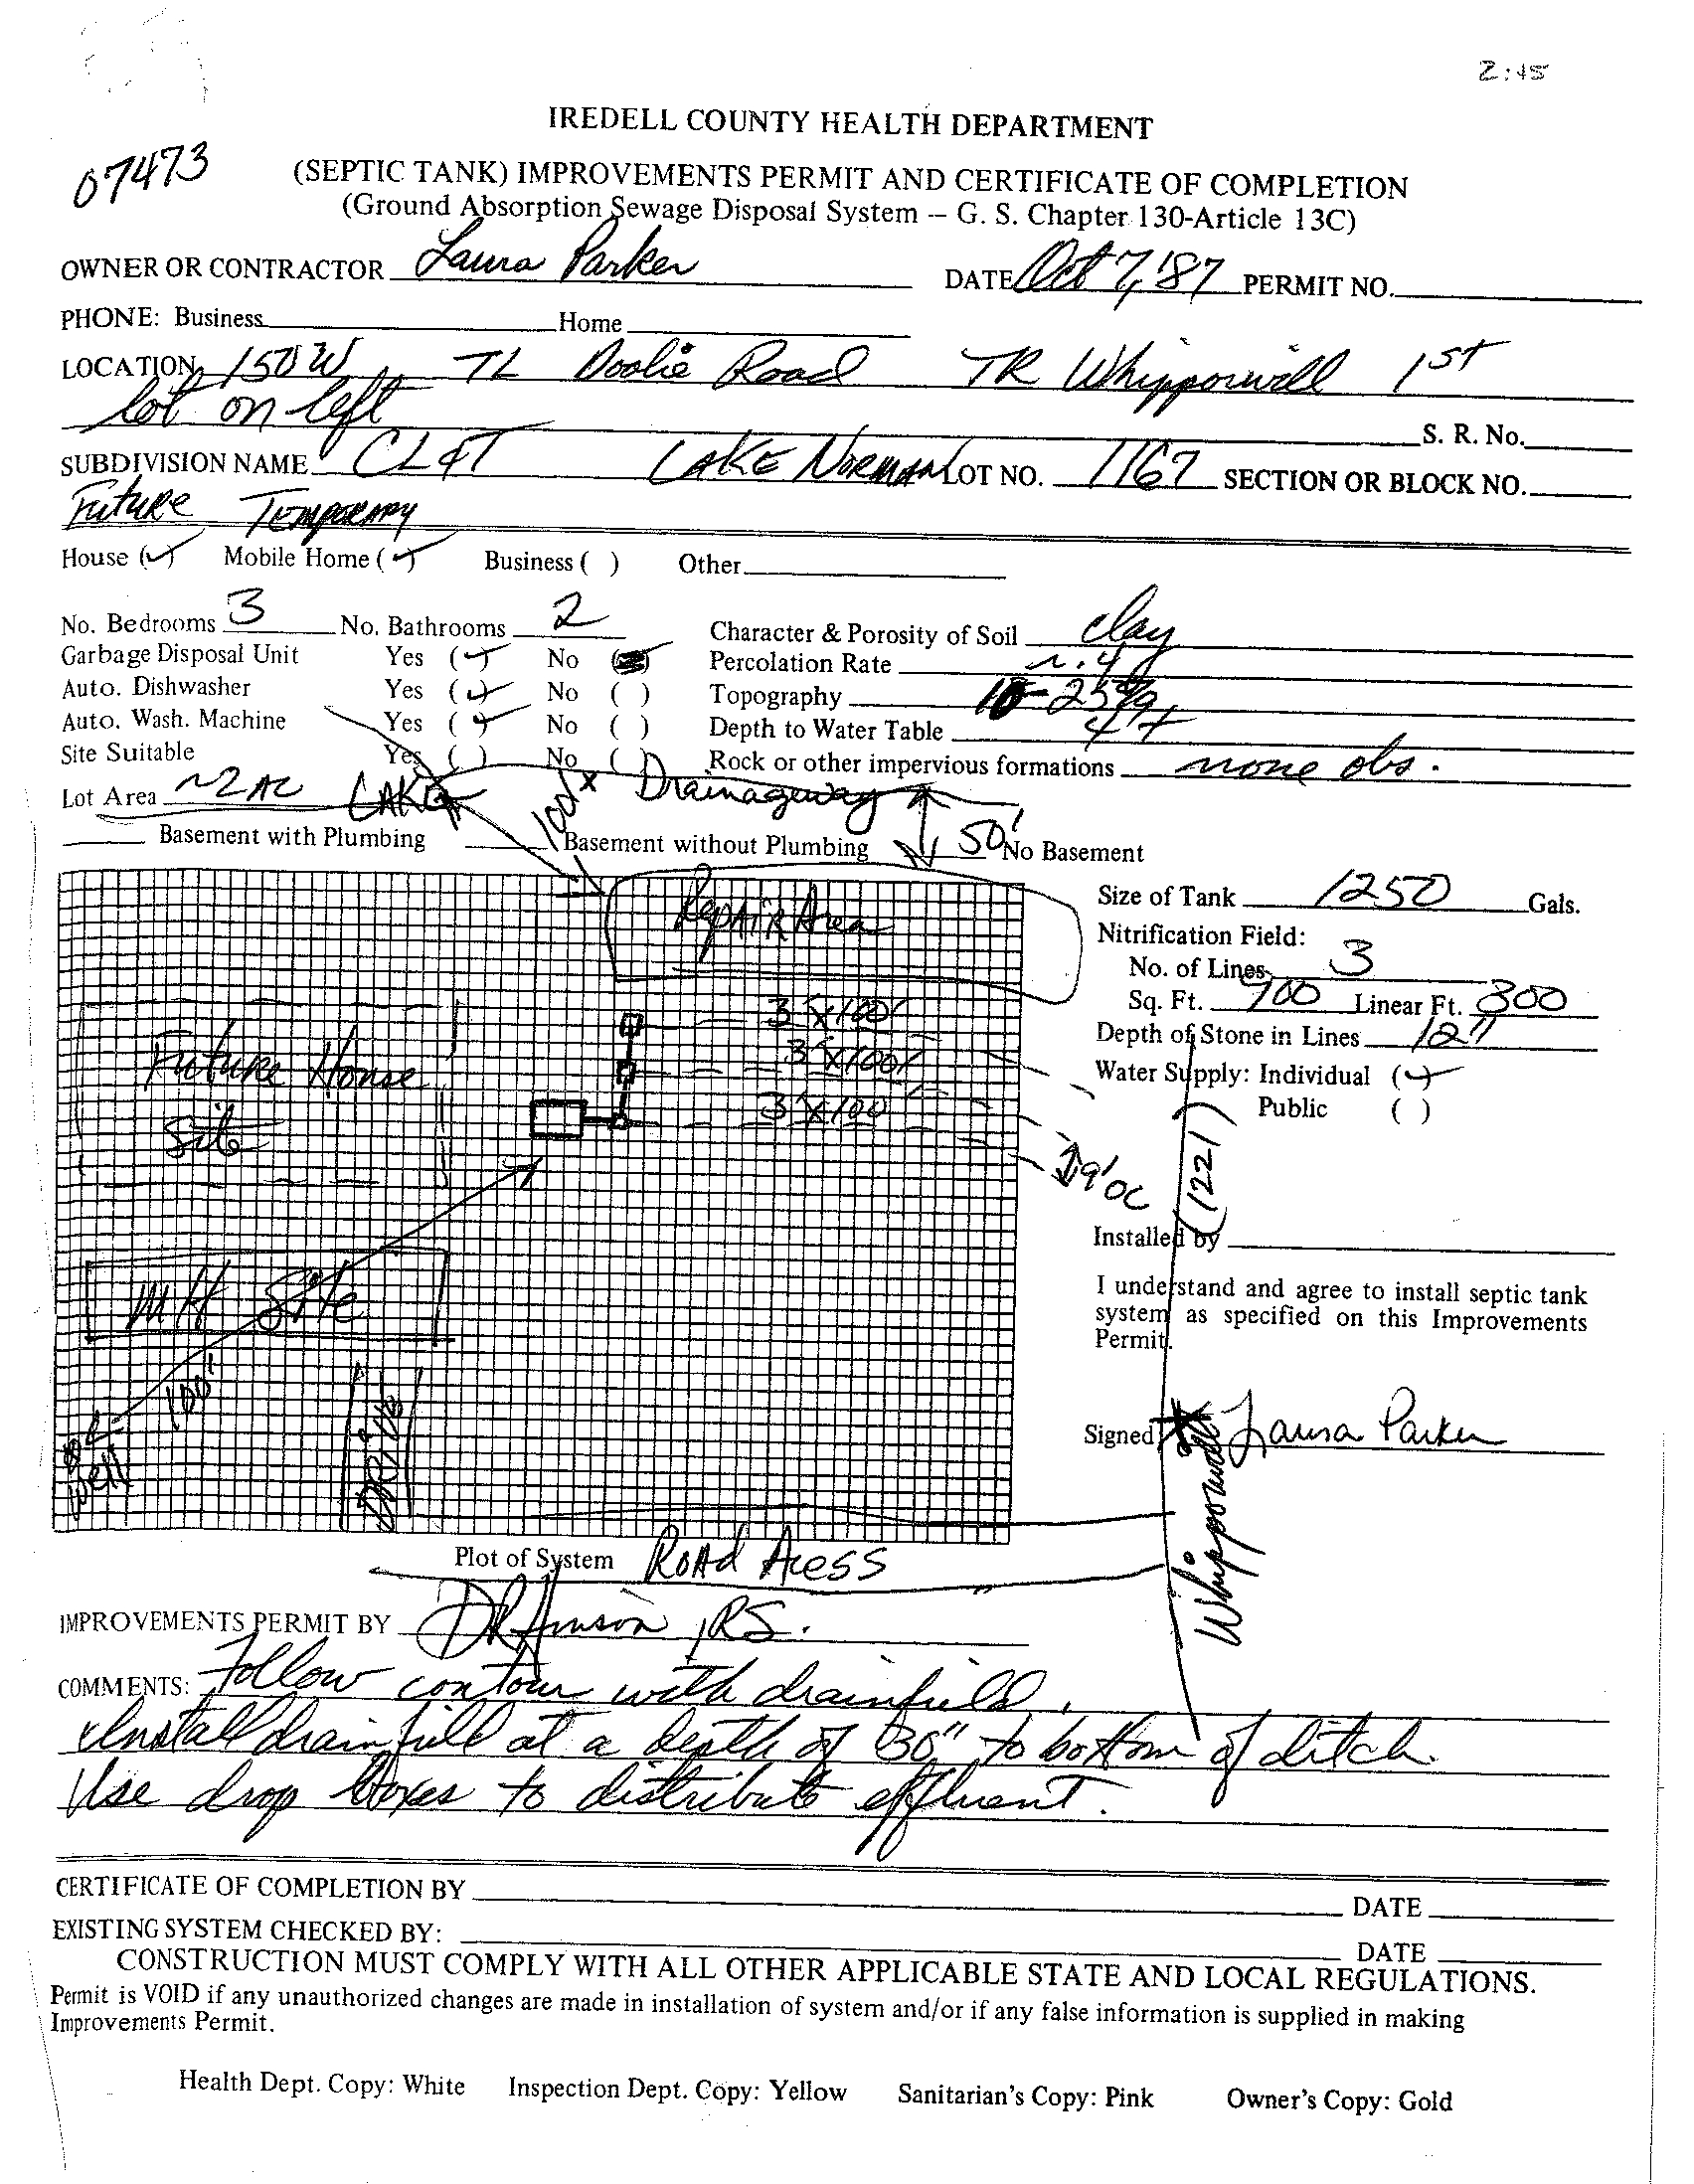 2:45
IREDELL COUNTY HEALTH DEPARTMENT
07473
(SEPTIC TANK) IMPROVEMENTS PERMIT AND CERTIFICATE OF COMPLETION
(Ground Absorption Sewage Disposal System — G. S. Chapter 130-Article 13C)
OWNER OR CONTRACTOR Laura Parker DATE Oct 7, '87 PERMIT NO.
PHONE: Business Home
LOCATION 150 W TL Doolie Road TR Whipporwill 1st
lot on left S. R. No.
SUBDIVISION NAME CL&T LAKE NORMAN LOT NO. 1167 SECTION OR BLOCK NO.
Future TEMPORARY
House (✓) Mobile Home (✓) Business ( ) Other
No. Bedrooms 3 No. Bathrooms 2 Character & Porosity of Soil clay
Garbage Disposal Unit Yes (✓) No Percolation Rate ~.4
Auto. Dishwasher Yes (✓) No ( ) Topography 10-25%
Auto. Wash. Machine Yes (✓) No ( ) Depth to Water Table 4'+
Site Suitable Yes ( ) No ( ) Rock or other impervious formations none obs.
Lot Area ~2 AC LAKE 100'+ Drainageway
Basement with Plumbing Basement without Plumbing 50' No Basement
Repair Area
Size of Tank 1250 Gals.
Nitrification Field:
No. of Lines 3
Sq. Ft. 900 Linear Ft. 300
Depth of Stone in Lines 12"
Water Supply: Individual (✓)
Public ( )
3'x100'
3'x100'
3'x100'
9'OC
Future House
Site
(1221)
Installed by
MH Site
I understand and agree to install septic tank
system as specified on this Improvements
Permit.
100'
Well
DRIVE
Signed Laura Parker
Whipporwill
Plot of System Road Acess
IMPROVEMENTS PERMIT BY DR Hinson, RS.
COMMENTS: Follow contour with drainfield.
Install drainfield at a depth of 30" to bottom of ditch.
Use drop boxes to distribute effluent.
CERTIFICATE OF COMPLETION BY DATE
EXISTING SYSTEM CHECKED BY: DATE
CONSTRUCTION MUST COMPLY WITH ALL OTHER APPLICABLE STATE AND LOCAL REGULATIONS.
Permit is VOID if any unauthorized changes are made in installation of system and/or if any false information is supplied in making
Improvements Permit.
Health Dept. Copy: White Inspection Dept. Copy: Yellow Sanitarian's Copy: Pink Owner's Copy: Gold